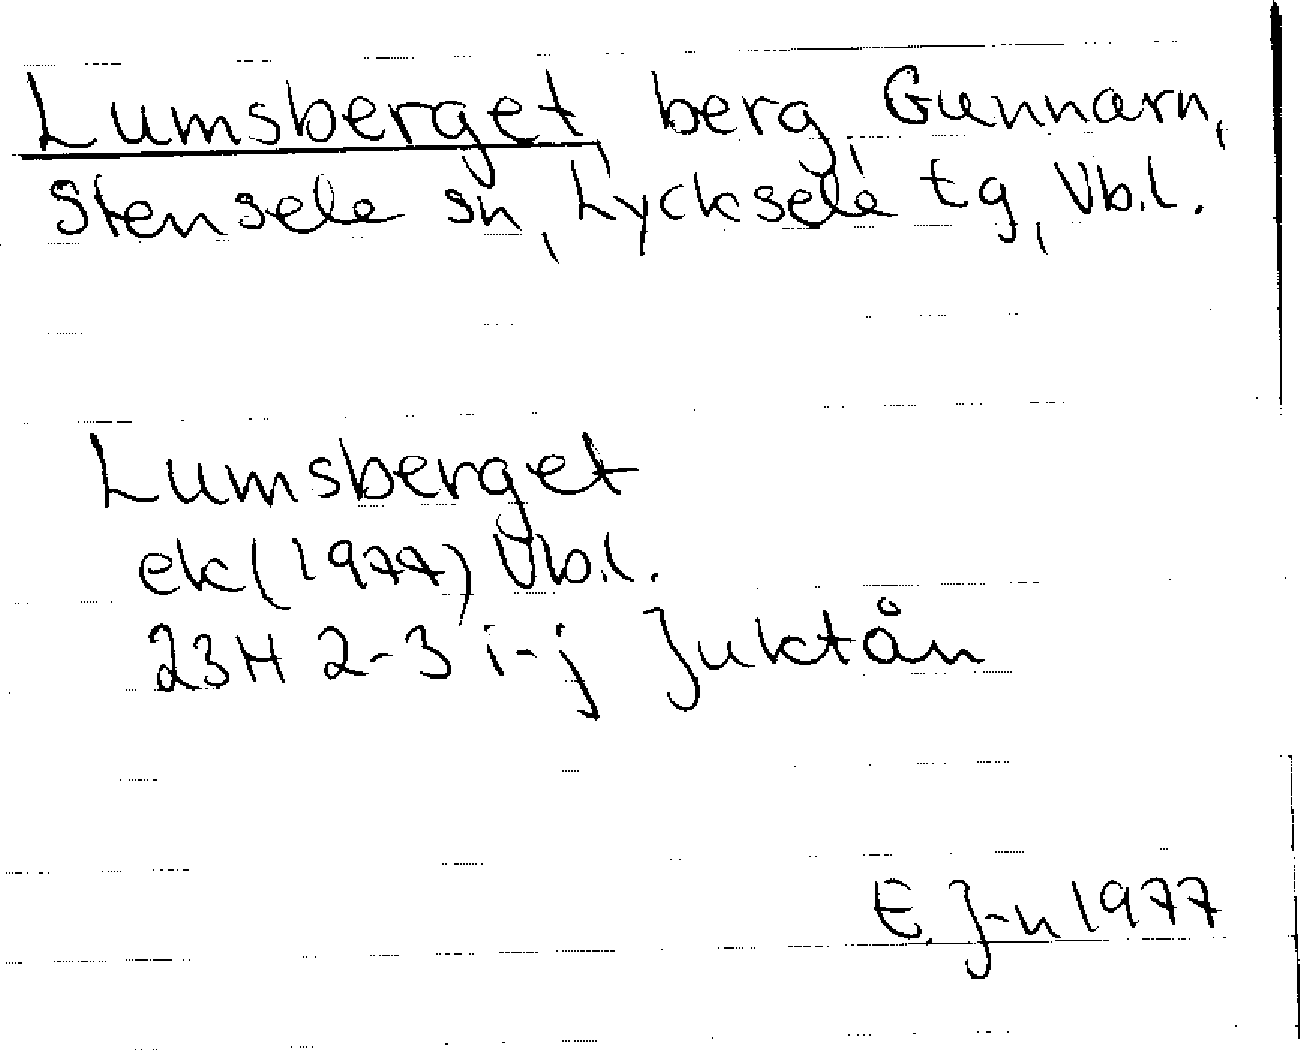 Lumsberget, berg, Gunnarn,
Stensele sn, Lycksele tg, Vb.l.
Lumsberget
ek(1977) Vb.l.
23H 2-3 i-j Juktån
E. J-n 1977